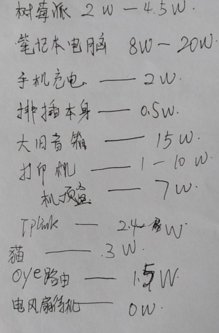 树莓派 2W — 4.5W.
笔记本电脑 8W — 20W.
手机充电 — 2W.
排插本身 — 0.5W.
大旧音箱 — 15W.
打印机 — 1 - 10W.
机顶盒 — 7W.
Tplink — 2.4 W
猫 — 3W.
Oye路由 — 1.5W.
电风扇待机 — 0W.